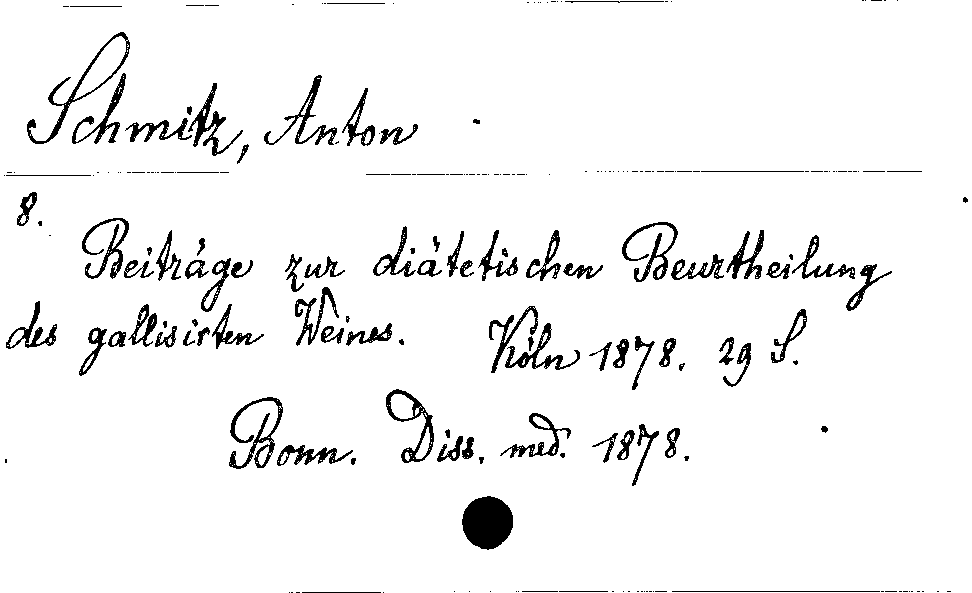 Schmitz, Anton
8.
Beiträge zur diätetischen Beurtheilung
des gallisirten Weines. Köln 1878. 29 S.
Bonn. Diss. med. 1878.